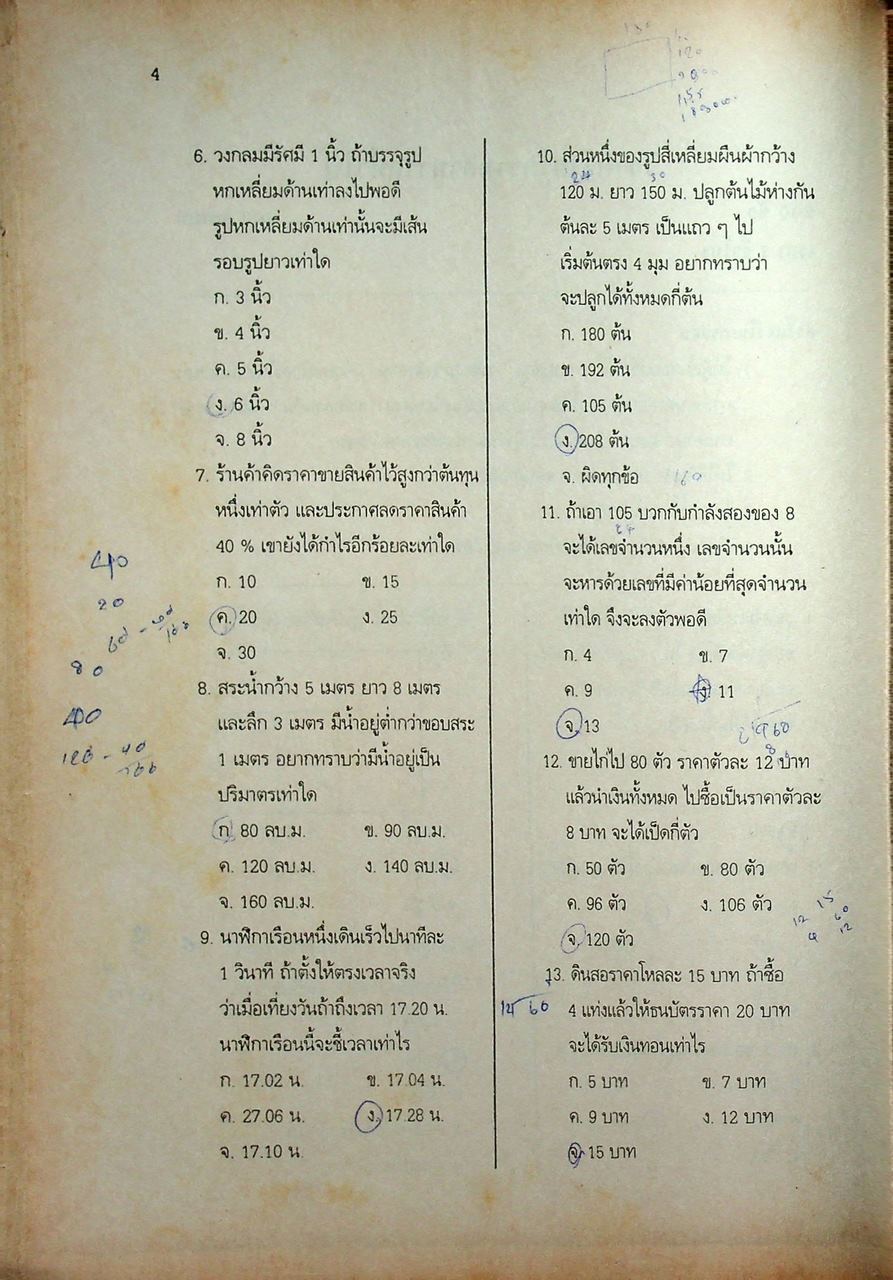 4
6. วงกลมมีรัศมี 1 นิ้ว ถ้าบรรจุรูป
หกเหลี่ยมด้านเท่าลงไปพอดี
รูปหกเหลี่ยมด้านเท่านั้นจะมีเส้น
รอบรูปยาวเท่าใด
ก. 3 นิ้ว
ข. 4 นิ้ว
ค. 5 นิ้ว
ง. 6 นิ้ว
จ. 8 นิ้ว
7. ร้านค้าคิดราคาขายสินค้าไว้สูงกว่าต้นทุน
หนึ่งเท่าตัว และประกาศลดราคาสินค้า
40 % เขายังได้กำไรอีกร้อยละเท่าใด
ก. 10 ข. 15
ค. 20 ง. 25
จ. 30
8. สระน้ำกว้าง 5 เมตร ยาว 8 เมตร
และลึก 3 เมตร มีน้ำอยู่ต่ำกว่าขอบสระ
1 เมตร อยากทราบว่ามีน้ำอยู่เป็น
ปริมาตรเท่าใด
ก. 80 ลบ.ม. ข. 90 ลบ.ม.
ค. 120 ลบ.ม. ง. 140 ลบ.ม.
จ. 160 ลบ.ม.
9. นาฬิกาเรือนหนึ่งเดินเร็วไปนาทีละ
1 วินาที ถ้าตั้งให้ตรงเวลาจริง
ว่าเมื่อเที่ยงวันถ้าถึงเวลา 17.20 น.
นาฬิกาเรือนนี้จะชี้เวลาเท่าไร
ก. 17.02 น. ข. 17.04 น.
ค. 27.06 น. ง. 17.28 น.
จ. 17.10 น.
40
20
80
400
10. ส่วนหนึ่งของรูปสี่เหลี่ยมผืนผ้ากว้าง
120 ม. ยาว 150 ม. ปลูกต้นไม้ห่างกัน
ต้นละ 5 เมตร เป็นแถว ๆ ไป
เริ่มต้นตรง 4 มุม อยากทราบว่า
จะปลูกได้ทั้งหมดกี่ต้น
ก. 180 ต้น
ข. 192 ต้น
ค. 105 ต้น
ง. 208 ต้น
จ. ผิดทุกข้อ
11. ถ้าเอา 105 บวกกับกำลังสองของ 8
จะได้เลขจำนวนหนึ่ง เลขจำนวนนั้น
จะหารด้วยเลขที่มีค่าน้อยที่สุดจำนวน
เท่าใด จึงจะลงตัวพอดี
ก. 4 ข. 7
ค. 9 ง. 11
จ. 13
12. ขายไก่ไป 80 ตัว ราคาตัวละ 12 บาท
แล้วนำเงินทั้งหมด ไปซื้อเป็นราคาตัวละ
8 บาท จะได้เป็ดกี่ตัว
ก. 50 ตัว ข. 80 ตัว
ค. 96 ตัว ง. 106 ตัว
จ. 120 ตัว
13. ดินสอราคาโหลละ 15 บาท ถ้าซื้อ
4 แท่งแล้วให้ธนบัตรราคา 20 บาท
จะได้รับเงินทอนเท่าไร
ก. 5 บาท ข. 7 บาท
ค. 9 บาท ง. 12 บาท
จ. 15 บาท